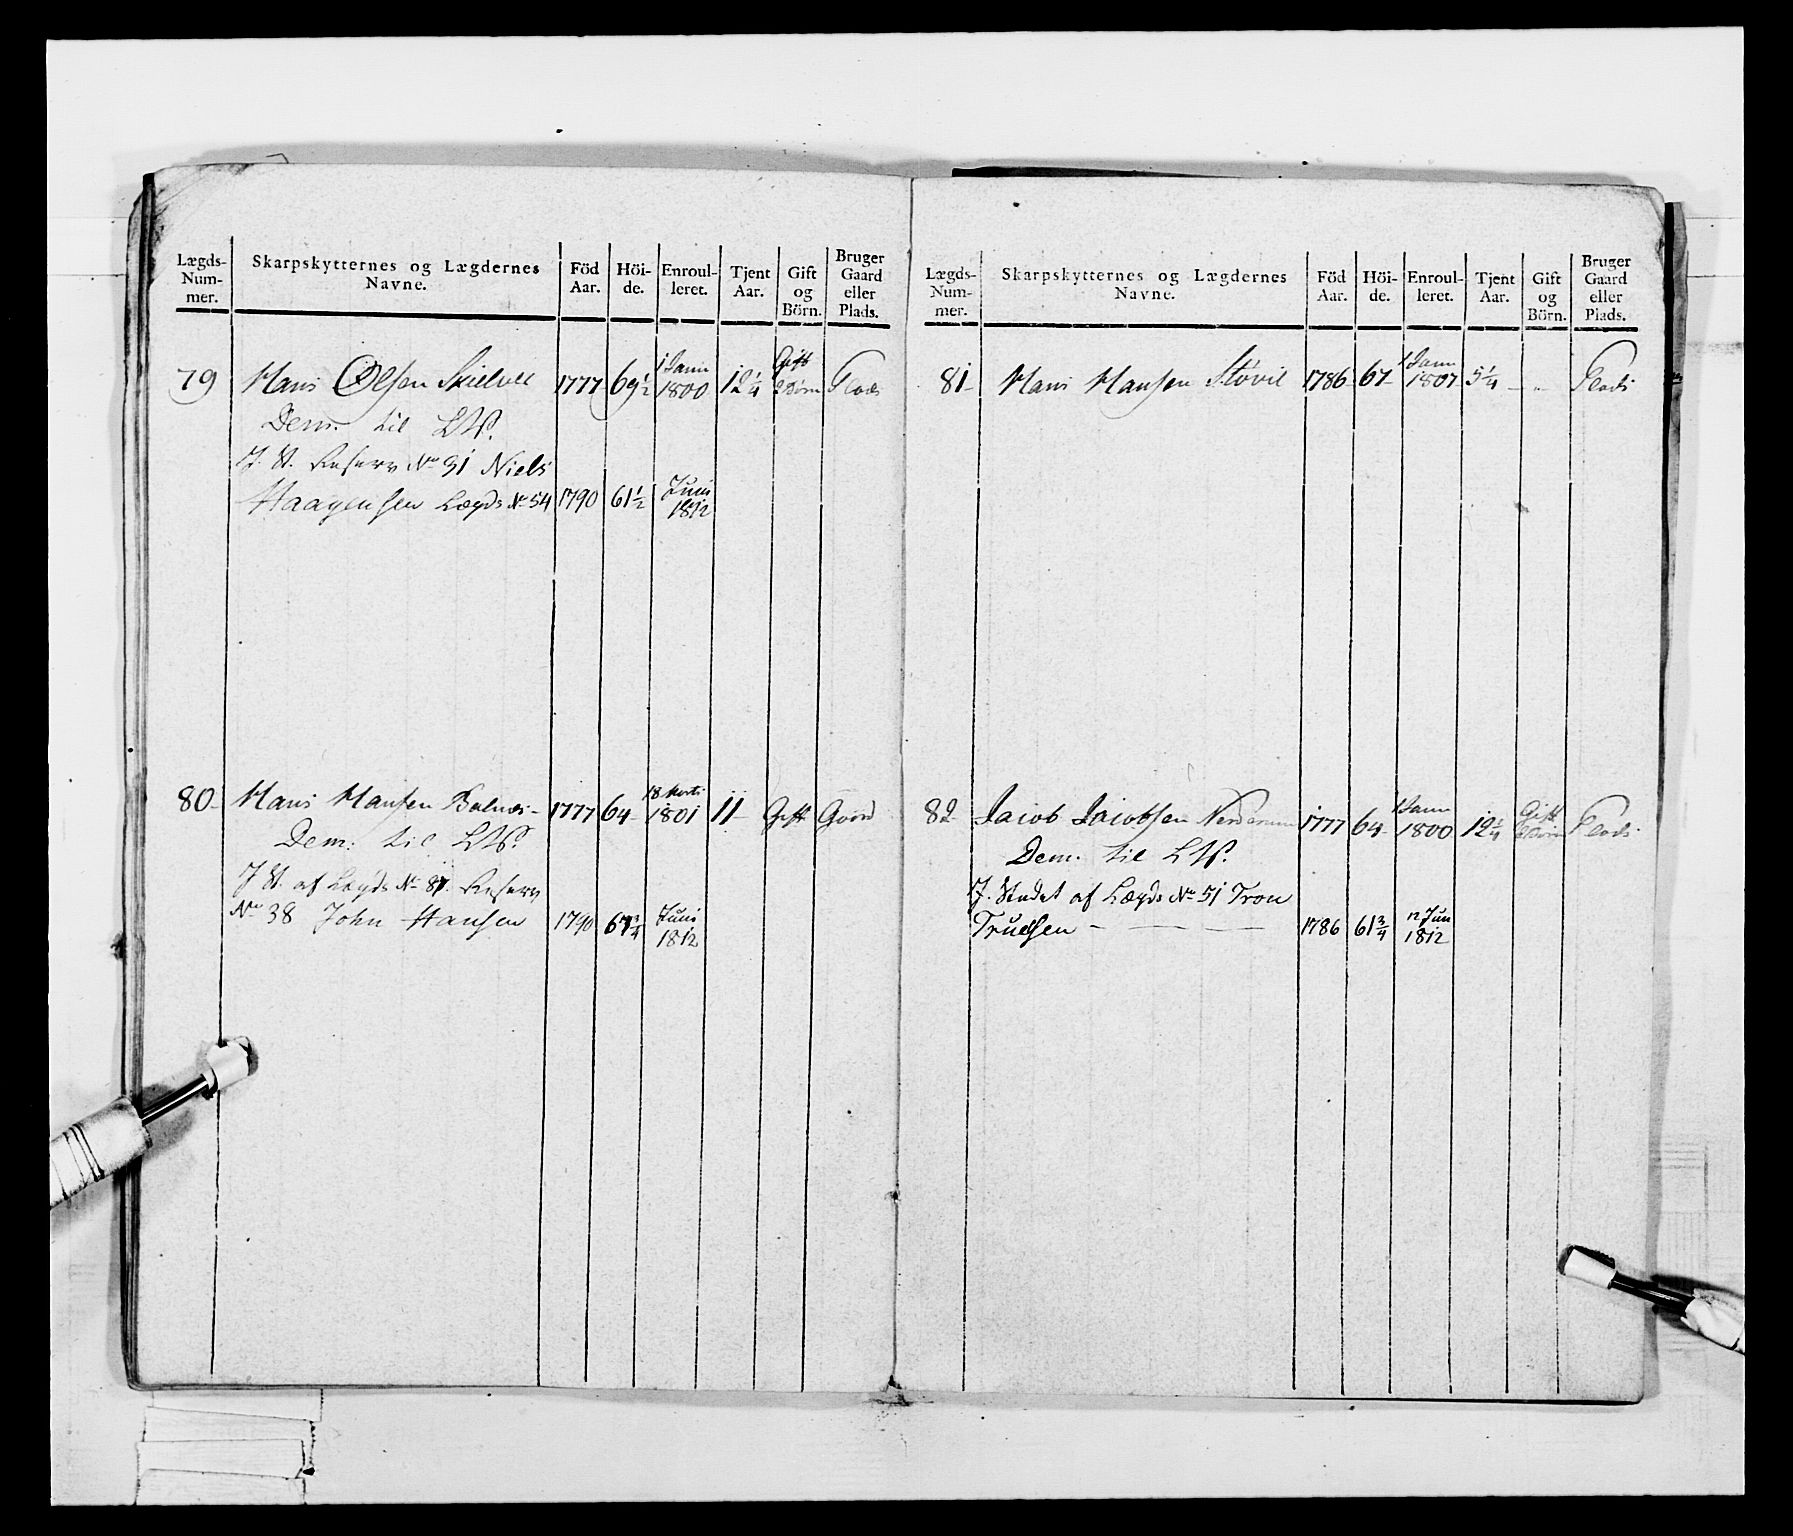 Lægds-Num-mer. Skarpskytternes og Lægdernes Navne. Föd Aar. Höi-de. Enroul-leret. Tjent Aar. Gift og Börn. Bruger Gaard eller Plads.
79 Hans Olsen Skielvee 1777 69½ 1 Jann 1800 12¼ Gift Børn Plads
Dem. til LW.
J. St. Reserv No 31 Niels
Haagensen Lægds No 54 1790 61½ Juni 1812
80 Hans Hansen Balnæs 1777 64 18 Marti 1801 11 Gift Gaard
Dem. til LW.
J St. af Lægds No 87. Reserv
No 38 John Hansen 1790 Juni 1812
Lægds-Num-mer. Skarpskytternes og Lægdernes Navne. Föd Aar. Höi-de. Enroul-leret. Tjent Aar. Gift og Börn. Bruger Gaard eller Plads.
81 Hans Hansen Støvie 1786 67 1 Jann 1807 5¼ - „ Plads
82 Jacob Jacobsen 1777 64 1 Jann 1800 12¼ Gift Børn Plads
Dem. til LW.
J. Stedet af Lægds No 51 Tron
Truelsen - 1786 61¾ 12 Jun 1812